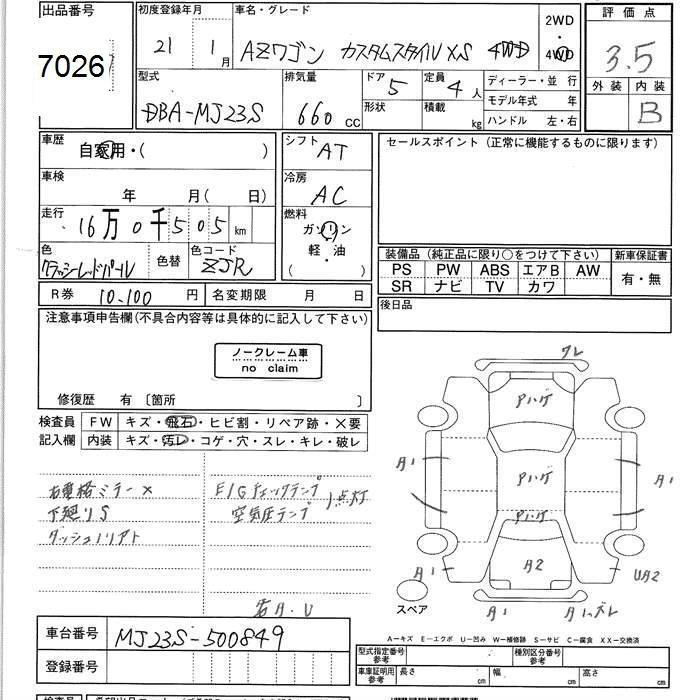 出品番号 初度登録年月 車名・グレード 2WD 評価点
7026 21年 1月 AZワゴン カスタムスタイルXS 4WD 4WD 3.5
型式 排気量 ドア 定員 ディーラー・並行 外装 内装
DBA-MJ23S 660cc 5 4人 モデル年式 年 B
形状 積載 kg ハンドル 左・右
車歴 シフト セールスポイント(正常に機能するものに限ります)
自家用・( ) AT
車検 冷房
年 月( 日) AC
走行 燃料
16万0千505km ガソリン
軽・油
( )
色 色替 色コード 装備品(純正品に限り○をつけて下さい) 新車保証書
ZJR PS PW ABS エアB AW 有・無
SR ナビ TV カワ
R券 10,100円 名変期限 月 日 後日品
注意事項申告欄(不具合内容等は具体的に記入して下さい)
ノークレーム車
no claim
修復歴 有 〔箇所 〕
検査員 FW キズ・飛石・ヒビ割・リペア跡・×要
記入欄 内装 キズ・汚レ・コゲ・穴・スレ・キレ・破レ
右電格ミラー×
下廻りS
E/Gチェックランプ
空気圧ランプ 点灯
ワレ
アハゲ
アハゲ
アハゲ
A1
A1
A2
A1
UA2
A1
A1 ズレ
スペア
A-キズ E-エクボ U-凹み W-補修跡 S-サビ C-腐食 XX-交換済
車台番号 MJ23S-500849
登録番号
型式指定番号 参考 種別区分番号 参考
車庫証明用 参考 長さ cm 幅 cm 高さ cm